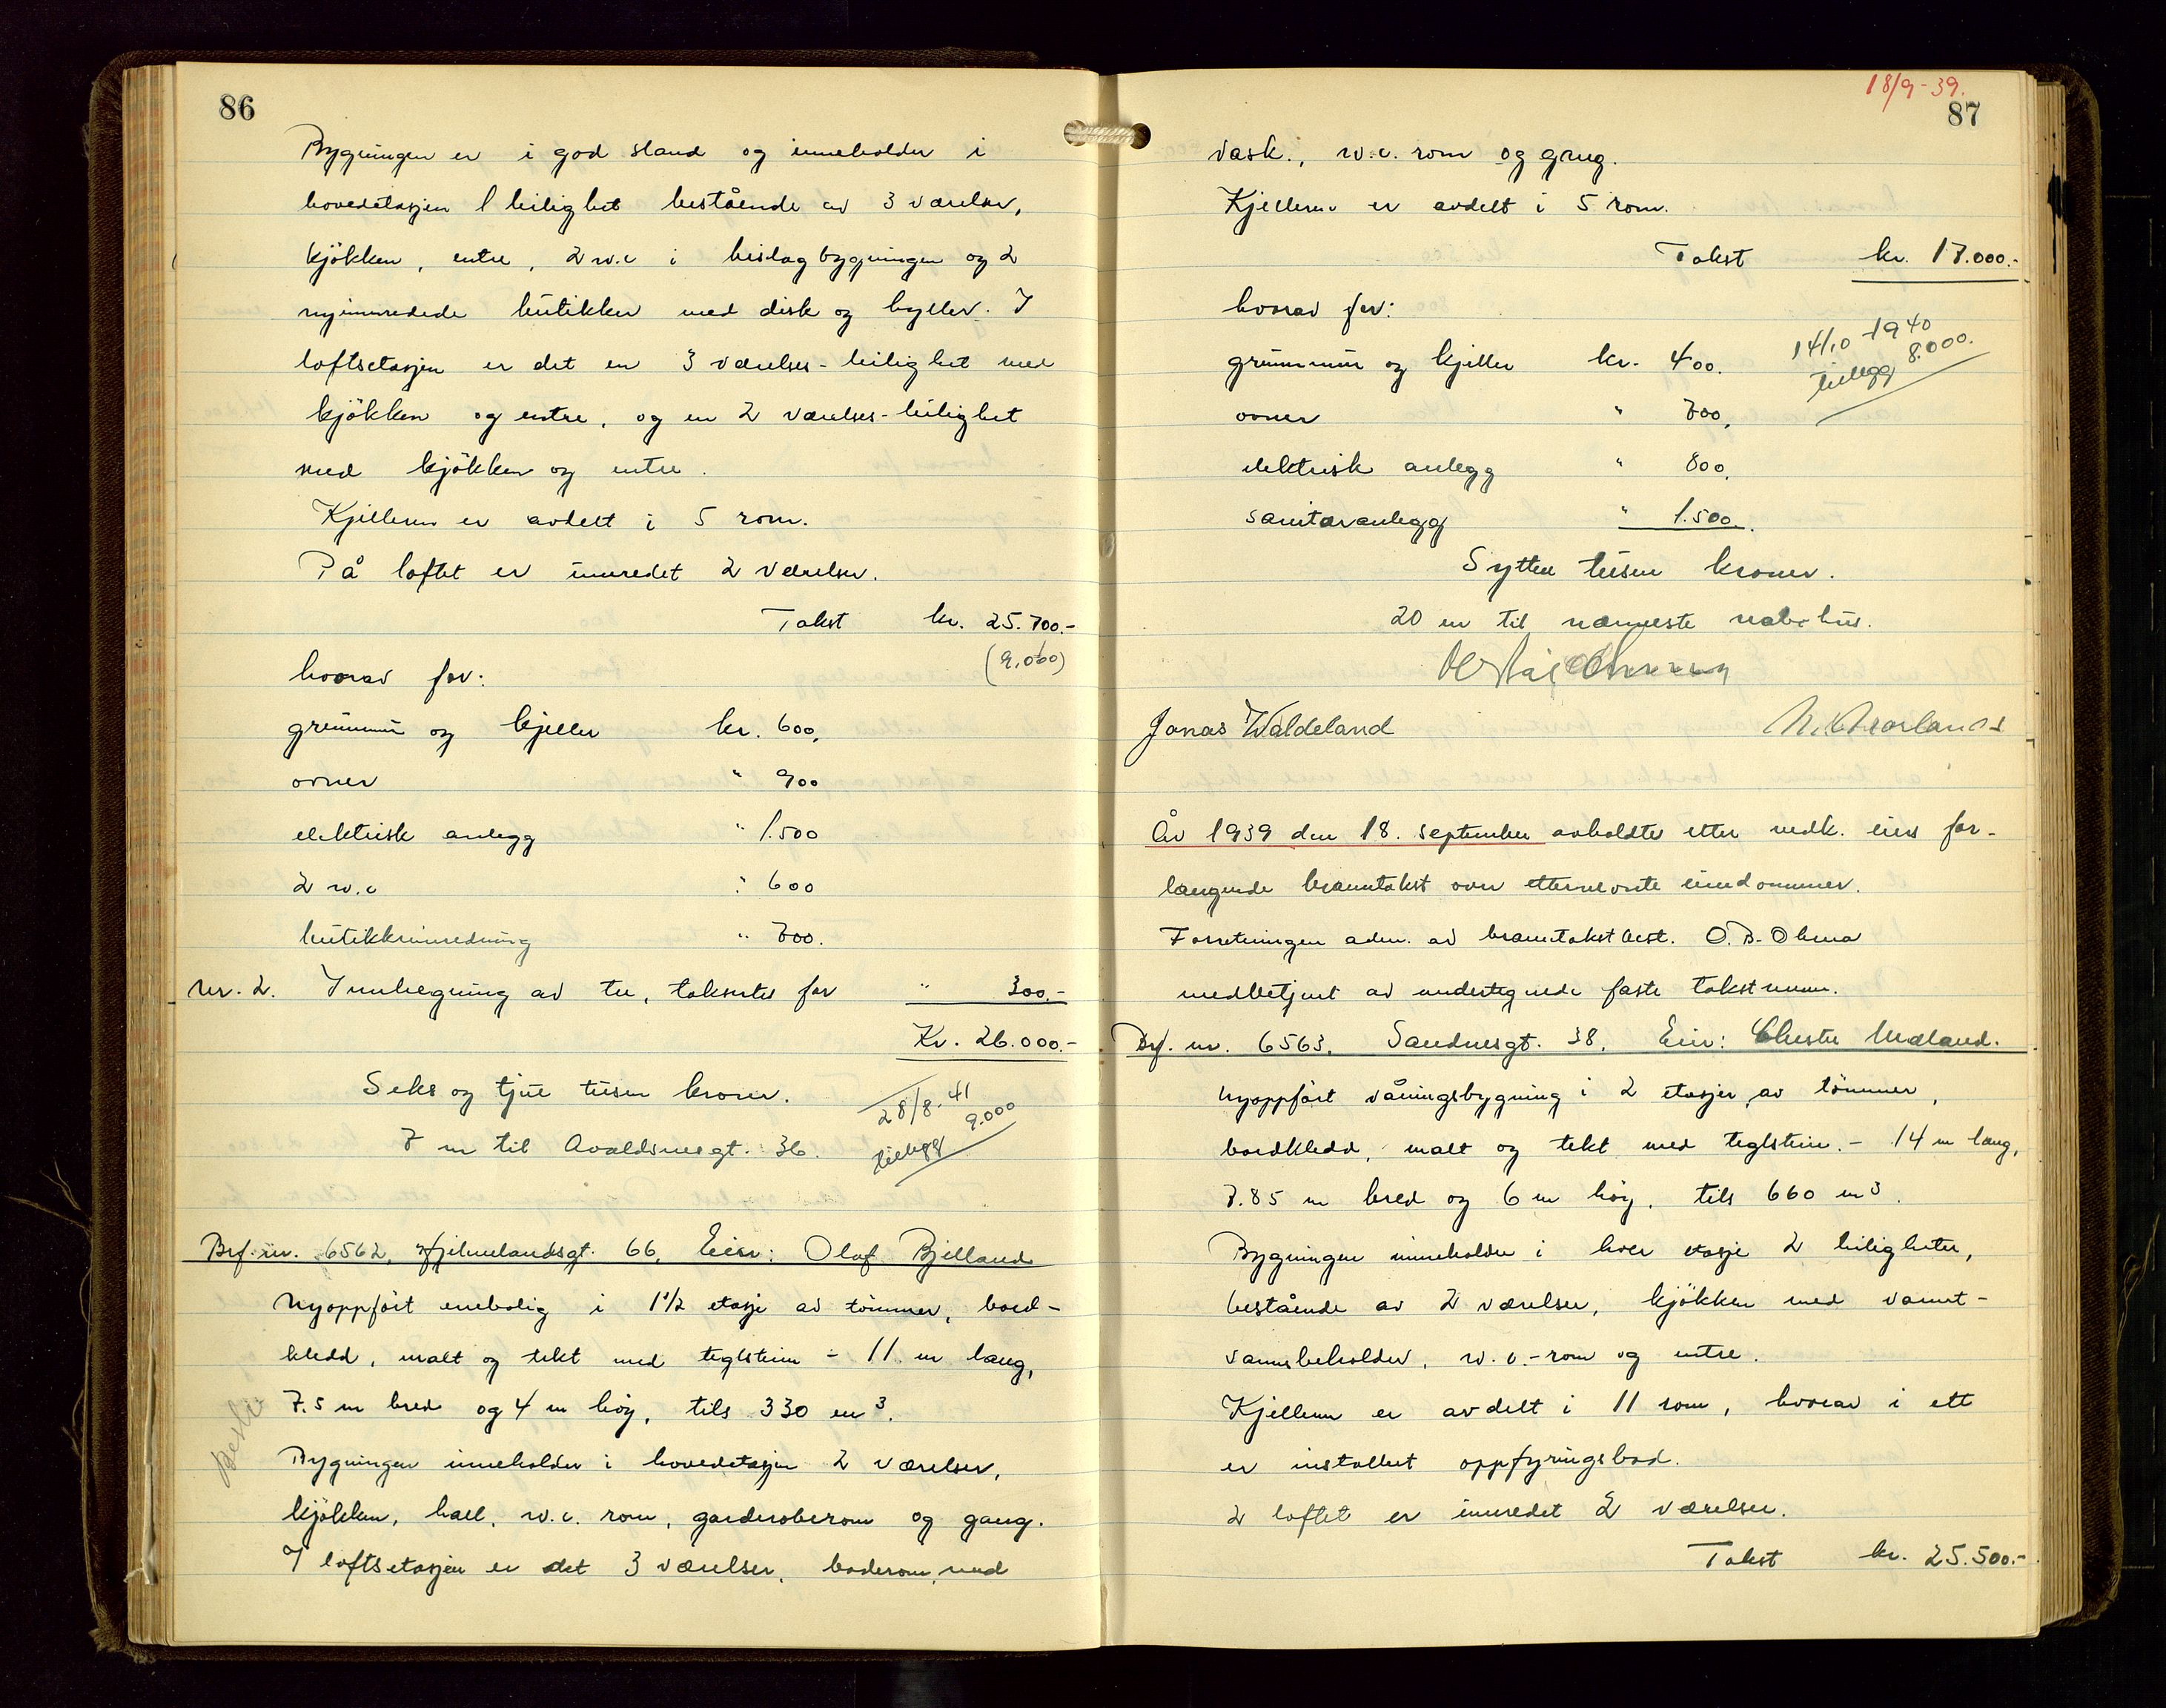 86
Bygningen er i god stand og inneholder i
hovedetasjen 1 leilighet bestående av 3 værelser,
kjökken, entre, 2 w.c i beislagbygningen og 2
nyinnredede butikker med disk og hyller. I
loftsetasjen er det en 3 værelses-leilighet med
kjökken og entre, og en 2 værelses-leilighet
med kjökken og entre.
Kjelleren er avdelt i 5 rom.
På loftet er innredet 2 værelser.
Takst kr. 25.700.-
(9.000)
hvorav for:
grunnmur og kjeller kr. 600,
ovner " 900
elektrisk anlegg " 1.500
2 w.c " 600
butikkinnredning " 700.
Nr. 2. Innhegning av tre, takseres for " 300.-
Kr. 26.000.-
Seks og tjue tusen kroner.
28/8-41
tillegg 9.000
7 m til Avaldsnesgt. 36.
Brf. nr. 6562, Hjelmelandsgt. 66, Eier: Olaf Bjelland
Nyoppfört enebolig i 1 1/2 etasje av tömmer, bord-
kledd, malt og tekt med teglstein - 11 m lang,
7.5 m bred og 4 m høy, tils 330 m3.
Bygningen inneholder i hovedetasjen 2 værelser,
kjökken, hall, w.c. rom, garderoberom og gang.
I loftsetasjen er det 3 værelser, baderom, med
18/9-39.
87
vask., w.c. rom og gang.
Kjelleren er avdelt i 5 rom.
Takst kr. 17.000.-
hvorav for:
grunnmur og kjeller kr. 400.
14/10-1940
tillegg 8.000.
ovner " 700,
elektrisk anlegg " 800,
sanitæranlegg " 1.500.
Sytten tusen kroner.
20 m til nærmeste nabohus.
Jonas Waldeland
År 1939 den 18. september avholdtes etter vedk. eiers for-
langende branntakst over etternevnte eiendommer.
Forretningen adm. av branntakstbest. O. B. Olsen
medbetjent av undertegnede faste takstmenn.
Brf. nr. 6563, Sandnesgt. 38, Eier: Chester Mæland.
Nyoppfört våningsbygning i 2 etasjer av tömmer,
bordkledd, malt og tekt med teglstein. - 14 m lang,
7.85 m bred og 6 m høy, tils 660 m3.
Bygningen inneholder i hver etasje 2 leiligheter,
bestående av 2 værelser, kjökken med varmt-
vannsbeholder, w.c.-rom og entre.
Kjelleren er avdelt i 11 rom, hvorav i ett
er installert oppfyringsbad.
I loftet er innredet 2 værelser.
Takst kr. 25.500.-